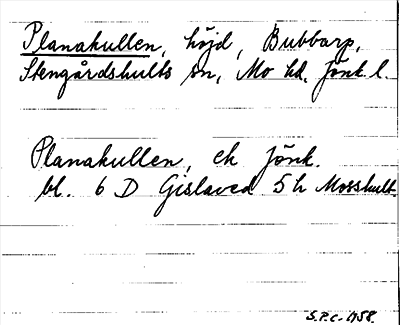 Planakullen, höjd, Bubbarp,
Stengårdshults sn, Mo hd, Jönk l.
Planakullen, ek Jönk.
bl. 6 D Gislaved 5 h Mosshult.
S.P.C. 1958.